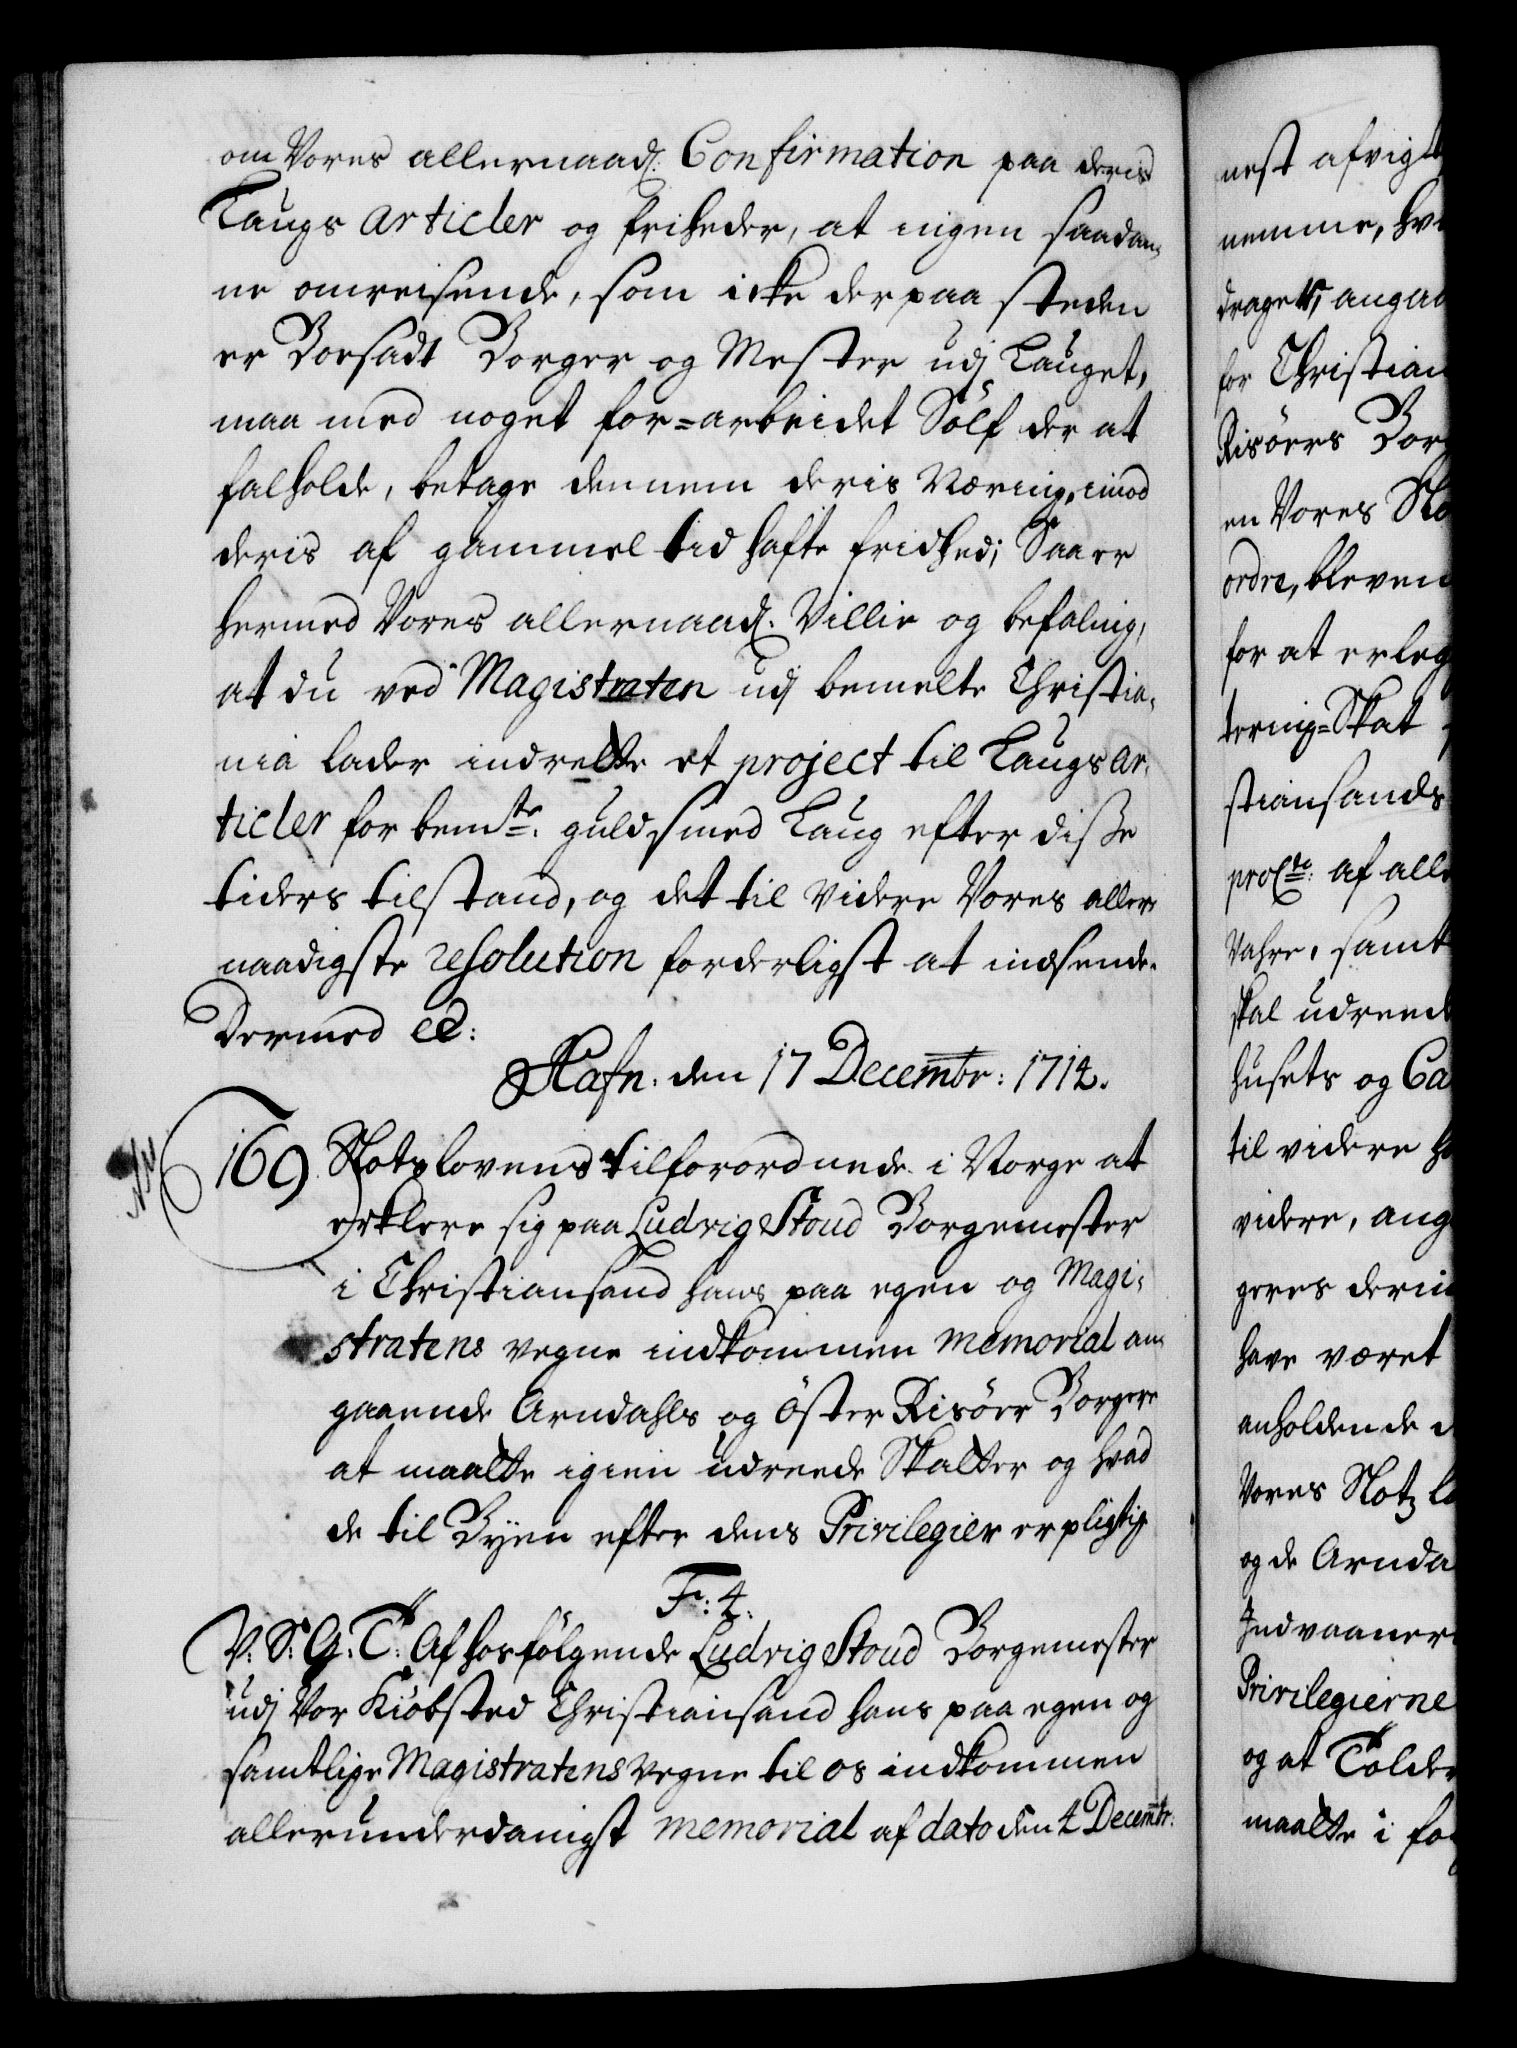 om Vores allernaad: Confirmation paa deris
Laugs articler og friheder, at ingen saadan-
ne omreisende, som icke der paa steden
er Boesadt Borger og Mester udj Lauget,
maa med noget for=arbeidet Sölf der at
falholde, betage dennem deris Næring, imod
deris af gammel tid hafte fridhed; Saa er
hermed Vores allernaad: Villie og befaling,
at du ved Magistraten udj bemelte Christia-
nia lader indrette et project til Laugs ar-
ticler for bemte: guldsmed Laug efter disse
tiders tilstand, og det til videre Vores aller-
naadigste resolution forderligst at indsende.
Dermed ec:
Hafn: den 17 Decembr: 1712.
169. Slotzlovens tilforordnede i Norge at
erklere sig paa Ludvig Stoud Borgemester
i Christiansand hans paa egen og Magi-
stratens vegne indkommen memorial an-
gaaende Arndahls og Öster Risöer Borgere
at maatte igien udreede Skatter og hvad
de til Byen efter dens Privilegier er pligtig
Fr: 4.
V: S: G: T: Af hosfölgende Ludvig Stoud Borgemester
udj Vor Kiöbsted Christiansand hans paa egen og
samtlige Magistratens vegne til os indkommen
allerunderdanigst memorial af dato den 4 Decembr:
nest afvigt
nemme, hv
drager, angaa
for Christian
Risöers Borg
en Vores Slo
ordre, bleven
for at erleg
tering=Skat
stiansands
procto: af alle
Vahre, samt
skal udreed
husets og Ca
til videre h
videre, ang
geres deri
have været
anholdende
Vores Slotz lo
og de Arnda
Indvaaner
Privilegierne
og at Tolder
maatte i fo